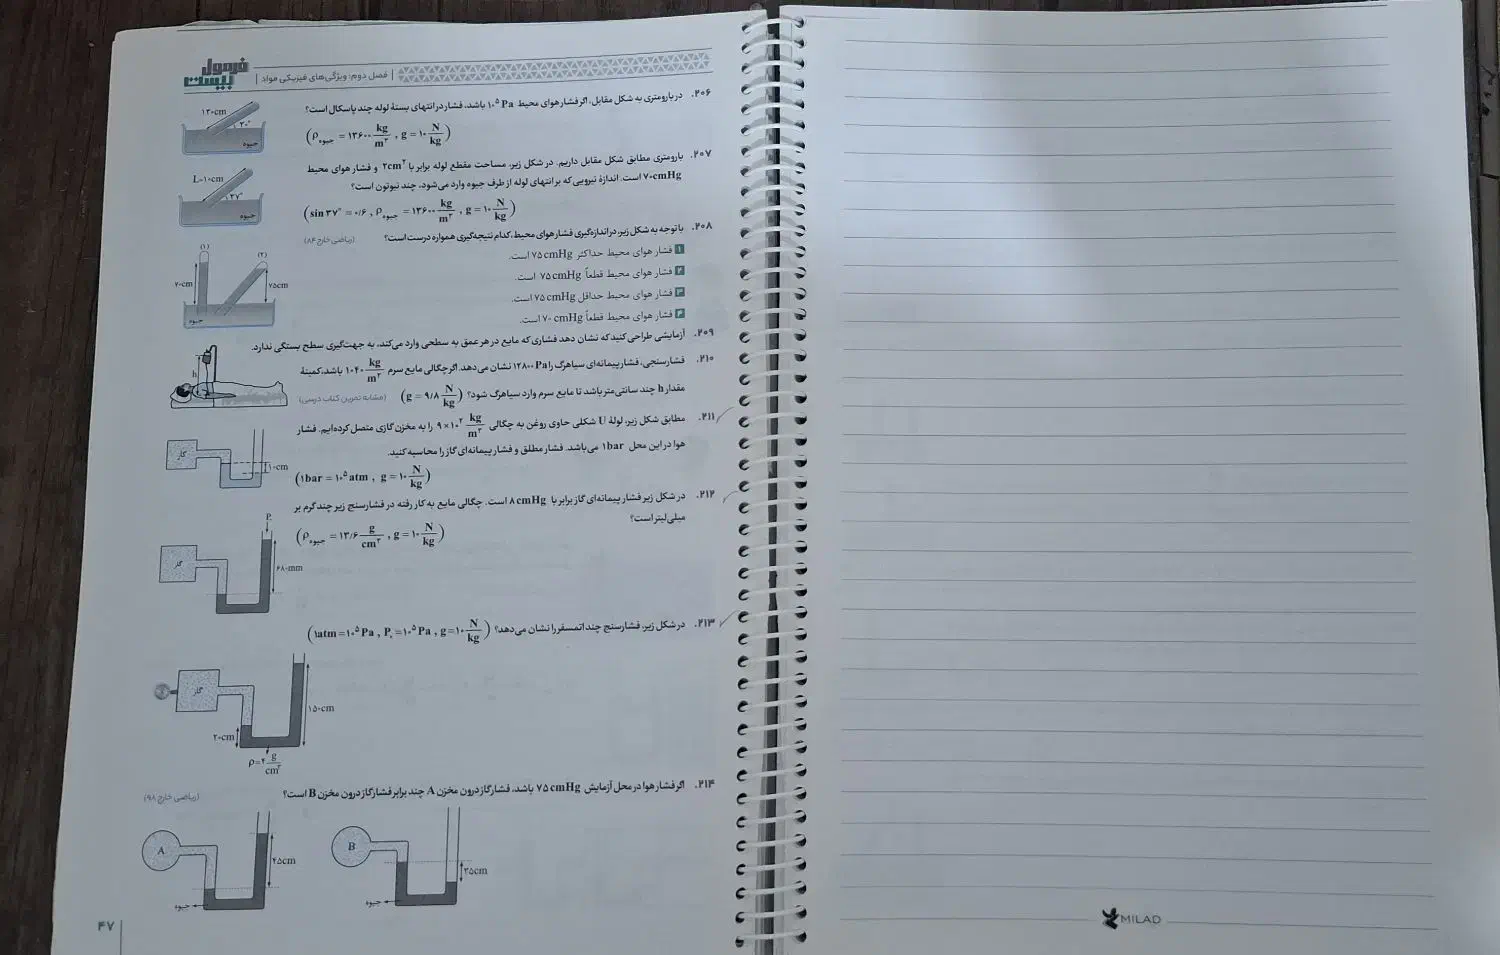 فرمول بیست
فصل دوم: ویژگی‌های فیزیکی مواد
۲۰۶. در بارومتری به شکل مقابل، اگر فشار هوای محیط ۱۰⁵ Pa باشد، فشار در انتهای بستهٔ لوله چند پاسکال است؟
(ρجیوه = ۱۳۶۰۰ kg/m³ , g = ۱۰ N/kg)
۱۳۰cm
۳۰°
جیوه
۲۰۷. بارومتری مطابق شکل مقابل داریم. در شکل زیر، مساحت مقطع لوله برابر با ۲cm² و فشار هوای محیط
۷۰cmHg است. اندازهٔ نیرویی که بر انتهای لوله از طرف جیوه وارد می‌شود، چند نیوتون است؟
(sin ۳۷° = ۰/۶ , ρجیوه = ۱۳۶۰۰ kg/m³ , g = ۱۰ N/kg)
L=۱۰cm
۳۷°
جیوه
۲۰۸. با توجه به شکل زیر، در اندازه‌گیری فشار هوای محیط، کدام نتیجه‌گیری همواره درست است؟ (ریاضی خارج ۸۴)
۱ فشار هوای محیط حداکثر ۷۵cmHg است.
۲ فشار هوای محیط قطعاً ۷۵cmHg است.
۳ فشار هوای محیط حداقل ۷۵cmHg است.
۴ فشار هوای محیط قطعاً ۷۰cmHg است.
(۱)
(۲)
۷۰cm
۷۵cm
جیوه
۲۰۹. آزمایشی طراحی کنید که نشان دهد فشاری که مایع در هر عمق به سطحی وارد می‌کند، به جهت‌گیری سطح بستگی ندارد.
۲۱۰. فشارسنجی، فشار پیمانه‌ای سیاهرگ را ۱۲۸۰۰Pa نشان می‌دهد. اگر چگالی مایع سرم ۱۰۴۰ kg/m³ باشد، کمینهٔ
مقدار h چند سانتی‌متر باشد تا مایع سرم وارد سیاهرگ شود؟ (g = ۹/۸ N/kg) (مشابه تمرین کتاب درسی)
h
۲۱۱. مطابق شکل زیر، لولهٔ U شکلی حاوی روغن به چگالی ۹×۱۰² kg/m³ را به مخزن گازی متصل کرده‌ایم. فشار
هوا در این محل ۱bar می‌باشد. فشار مطلق و فشار پیمانه‌ای گاز را محاسبه کنید.
(۱bar = ۱۰⁵ atm , g = ۱۰ N/kg)
گاز
۱۰cm
۲۱۲. در شکل زیر فشار پیمانه‌ای گاز برابر با ۸cmHg است. چگالی مایع به کار رفته در فشارسنج زیر چند گرم بر
میلی‌لیتر است؟
(ρجیوه = ۱۳/۶ g/cm³ , g = ۱۰ N/kg)
P₀
گاز
۶۸۰mm
۲۱۳. در شکل زیر، فشارسنج چند اتمسفر را نشان می‌دهد؟ (۱atm = ۱۰⁵ Pa , P₀ = ۱۰⁵ Pa , g = ۱۰ N/kg)
گاز
۱۵۰cm
۲۰cm
ρ=۲ g/cm³
۲۱۴. اگر فشار هوا در محل آزمایش ۷۵cmHg باشد، فشار گاز درون مخزن A چند برابر فشار گاز درون مخزن B است؟ (ریاضی خارج ۹۸)
A
۴۵cm
جیوه
B
۳۵cm
جیوه
۴۷
MILAD